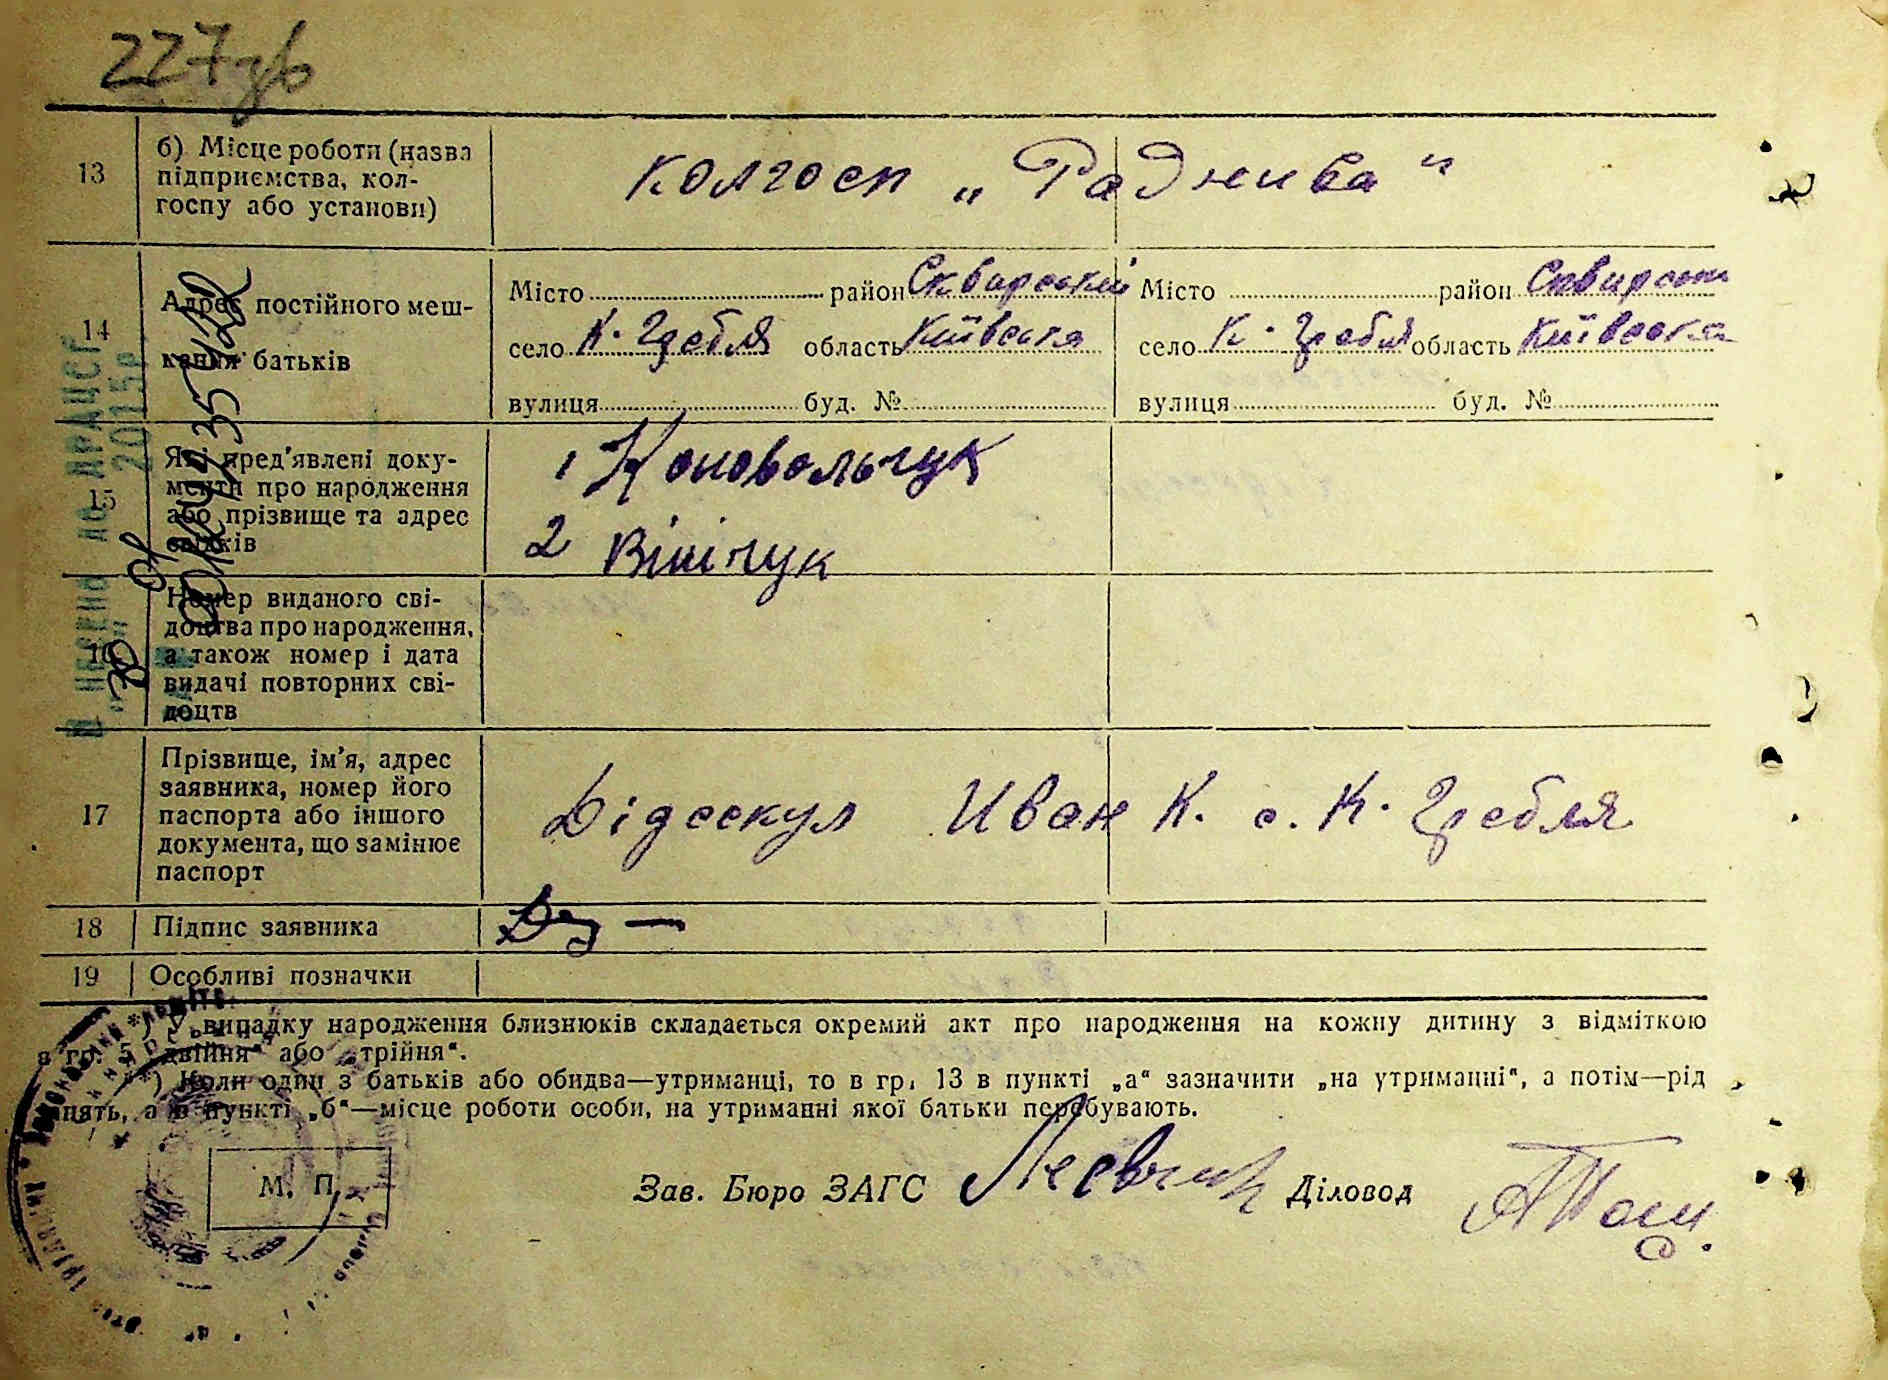 227зв
13
б) Місце роботи (назва
підприємства, кол-
госпу або установи)
колгосп „Раднива"
14
Адрес постійного меш-
кання батьків
Місто район Сквирський
село К. Гребля область Київська
вулиця буд. №
Місто район Сквирськ
село К. Гребля область Київська
вулиця буд. №
15
Які пред'явлені доку-
менти про народження
або прізвище та адрес
свідків
1 Коновальчук
2 Вінічук
16
Номер виданого сві-
доцтва про народження,
а також номер і дата
видачі повторних сві-
доцтв
17
Прізвище, ім'я, адрес
заявника, номер його
паспорта або іншого
документа, що замінює
паспорт
Дідескул Иван К. с. К. Гребля
18
Підпис заявника
19
Особливі позначки
У випадку народження близнюків складається окремий акт про народження на кожну дитину з відміткою
в гр. 5 „двійня" або „трійня".
Коли один з батьків або обидва—утриманці, то в гр. 13 в пункті „а" зазначити „на утриманні", а потім—рід
занять, а в пункті „б"—місце роботи особи, на утриманні якої батьки перебувають.
М. П.
Зав. Бюро ЗАГС
Діловод
ДРАЦСГ
2015р